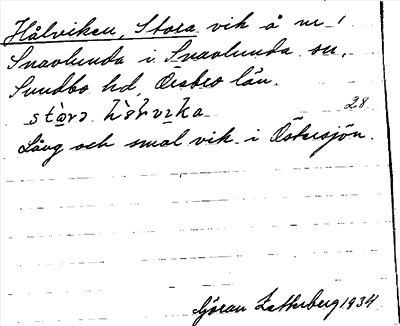 Hålviken, Stora vik å nr 1
Snavlunda i Snavlunda sn,
Sundbo hd, Örebro län.
28
Lång och smal vik i Östersjön.
Göran Zetterberg 1934